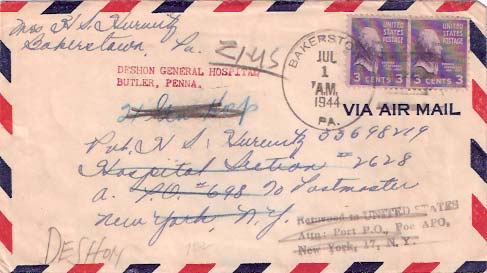 Mrs. H S. Hurwitz
Bakerstown, Pa.
DESHON GENERAL HOSPITAL
BUTLER, PENNA.
BAKERSTOWN
JUL
1
A.M.
1944
PA.
UNITED STATES POSTAGE
3 CENTS 3
UNITED STATES POSTAGE
3 CENTS 3
VIA AIR MAIL
Pvt. H S. Hurwitz 33698219
Hospital Section # 2628
A. P.O. #698 % Postmaster
New York, N.Y.
Returned to UNITED STATES
Attn: Port P.O., Foe APO,
New York, 17, N. Y.
DESHON